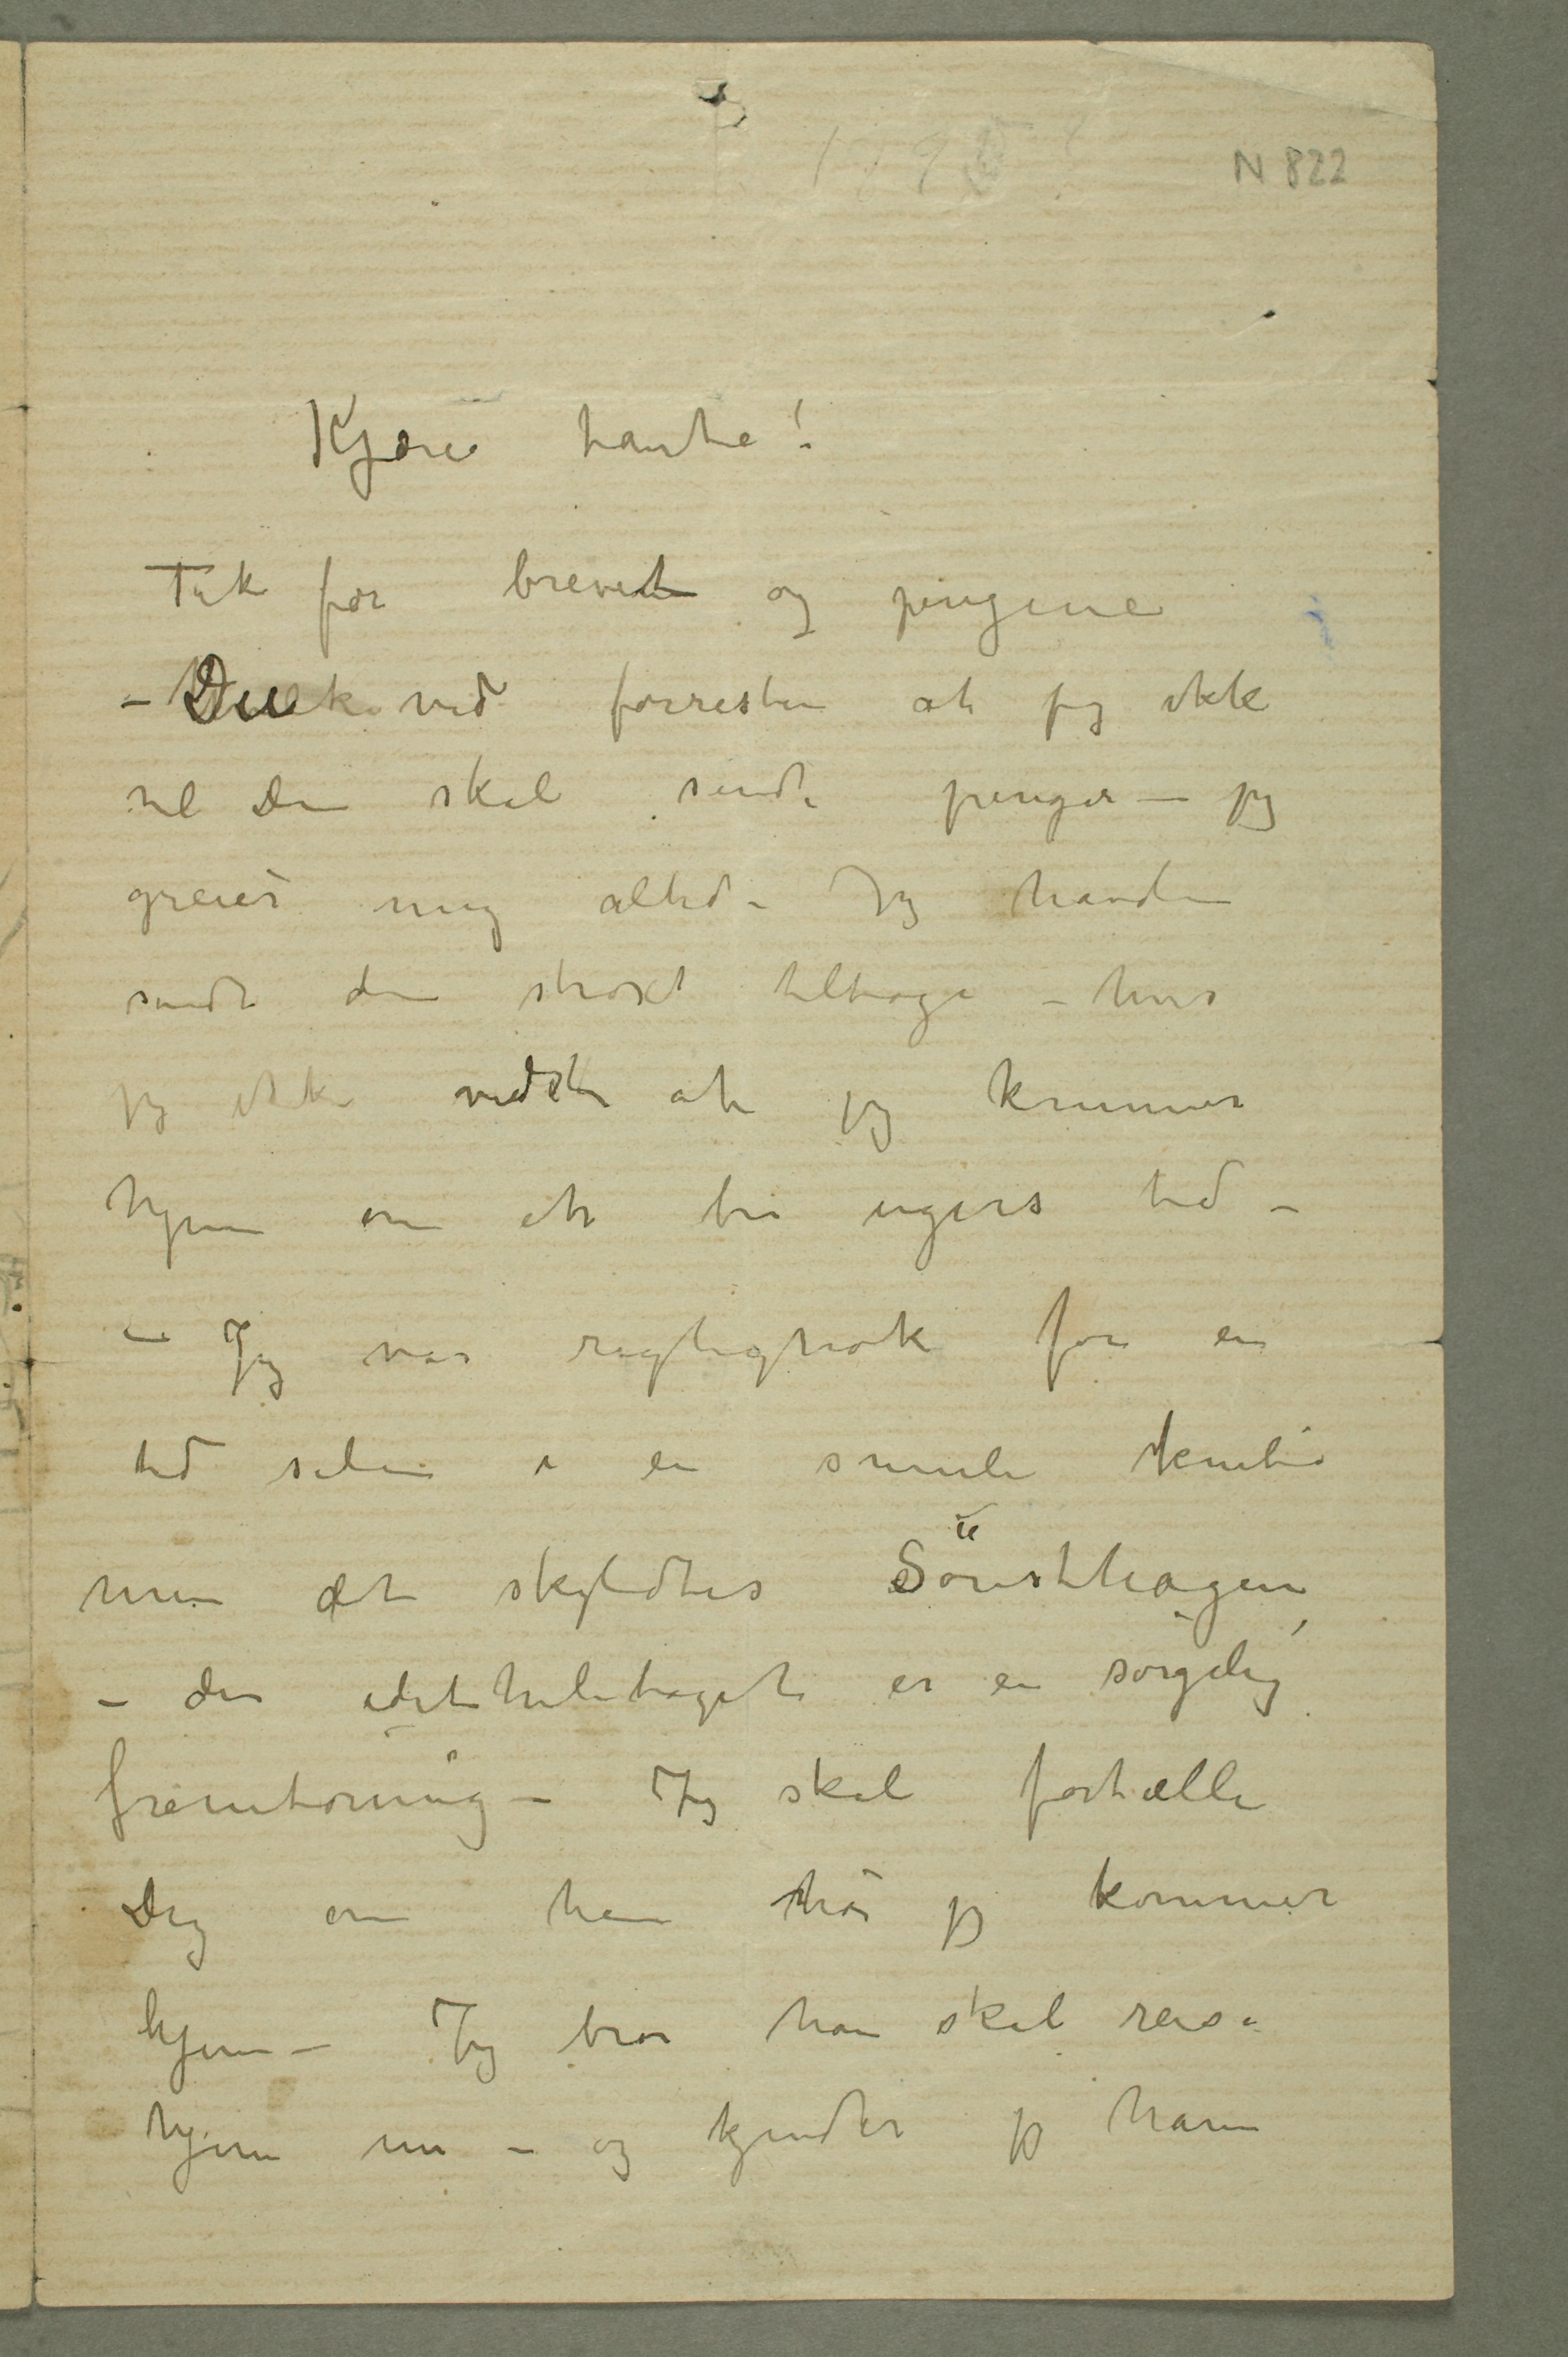 189 ?
N 822
Kjære tante!
Tak for brevet og pengene
– Du ved forresten at jeg ikke
vil Du skal sende penger – jeg
greier mig altid – Jeg havde
sendt dem straxt tilbage – hvis
jeg ikke vidste at jeg kommer
hjem om et par ugers tid –
– Jeg var rigtignok for en
tid siden i en smule knibe
men det skyldtes Sönsthagen
– der idetheletaget er en sørgelig
fremtoning – Jeg skal fortælle
Dig om ham når jeg kommer
hjem – Jeg tror han skal reise
hjem nu – og kjender jeg ham